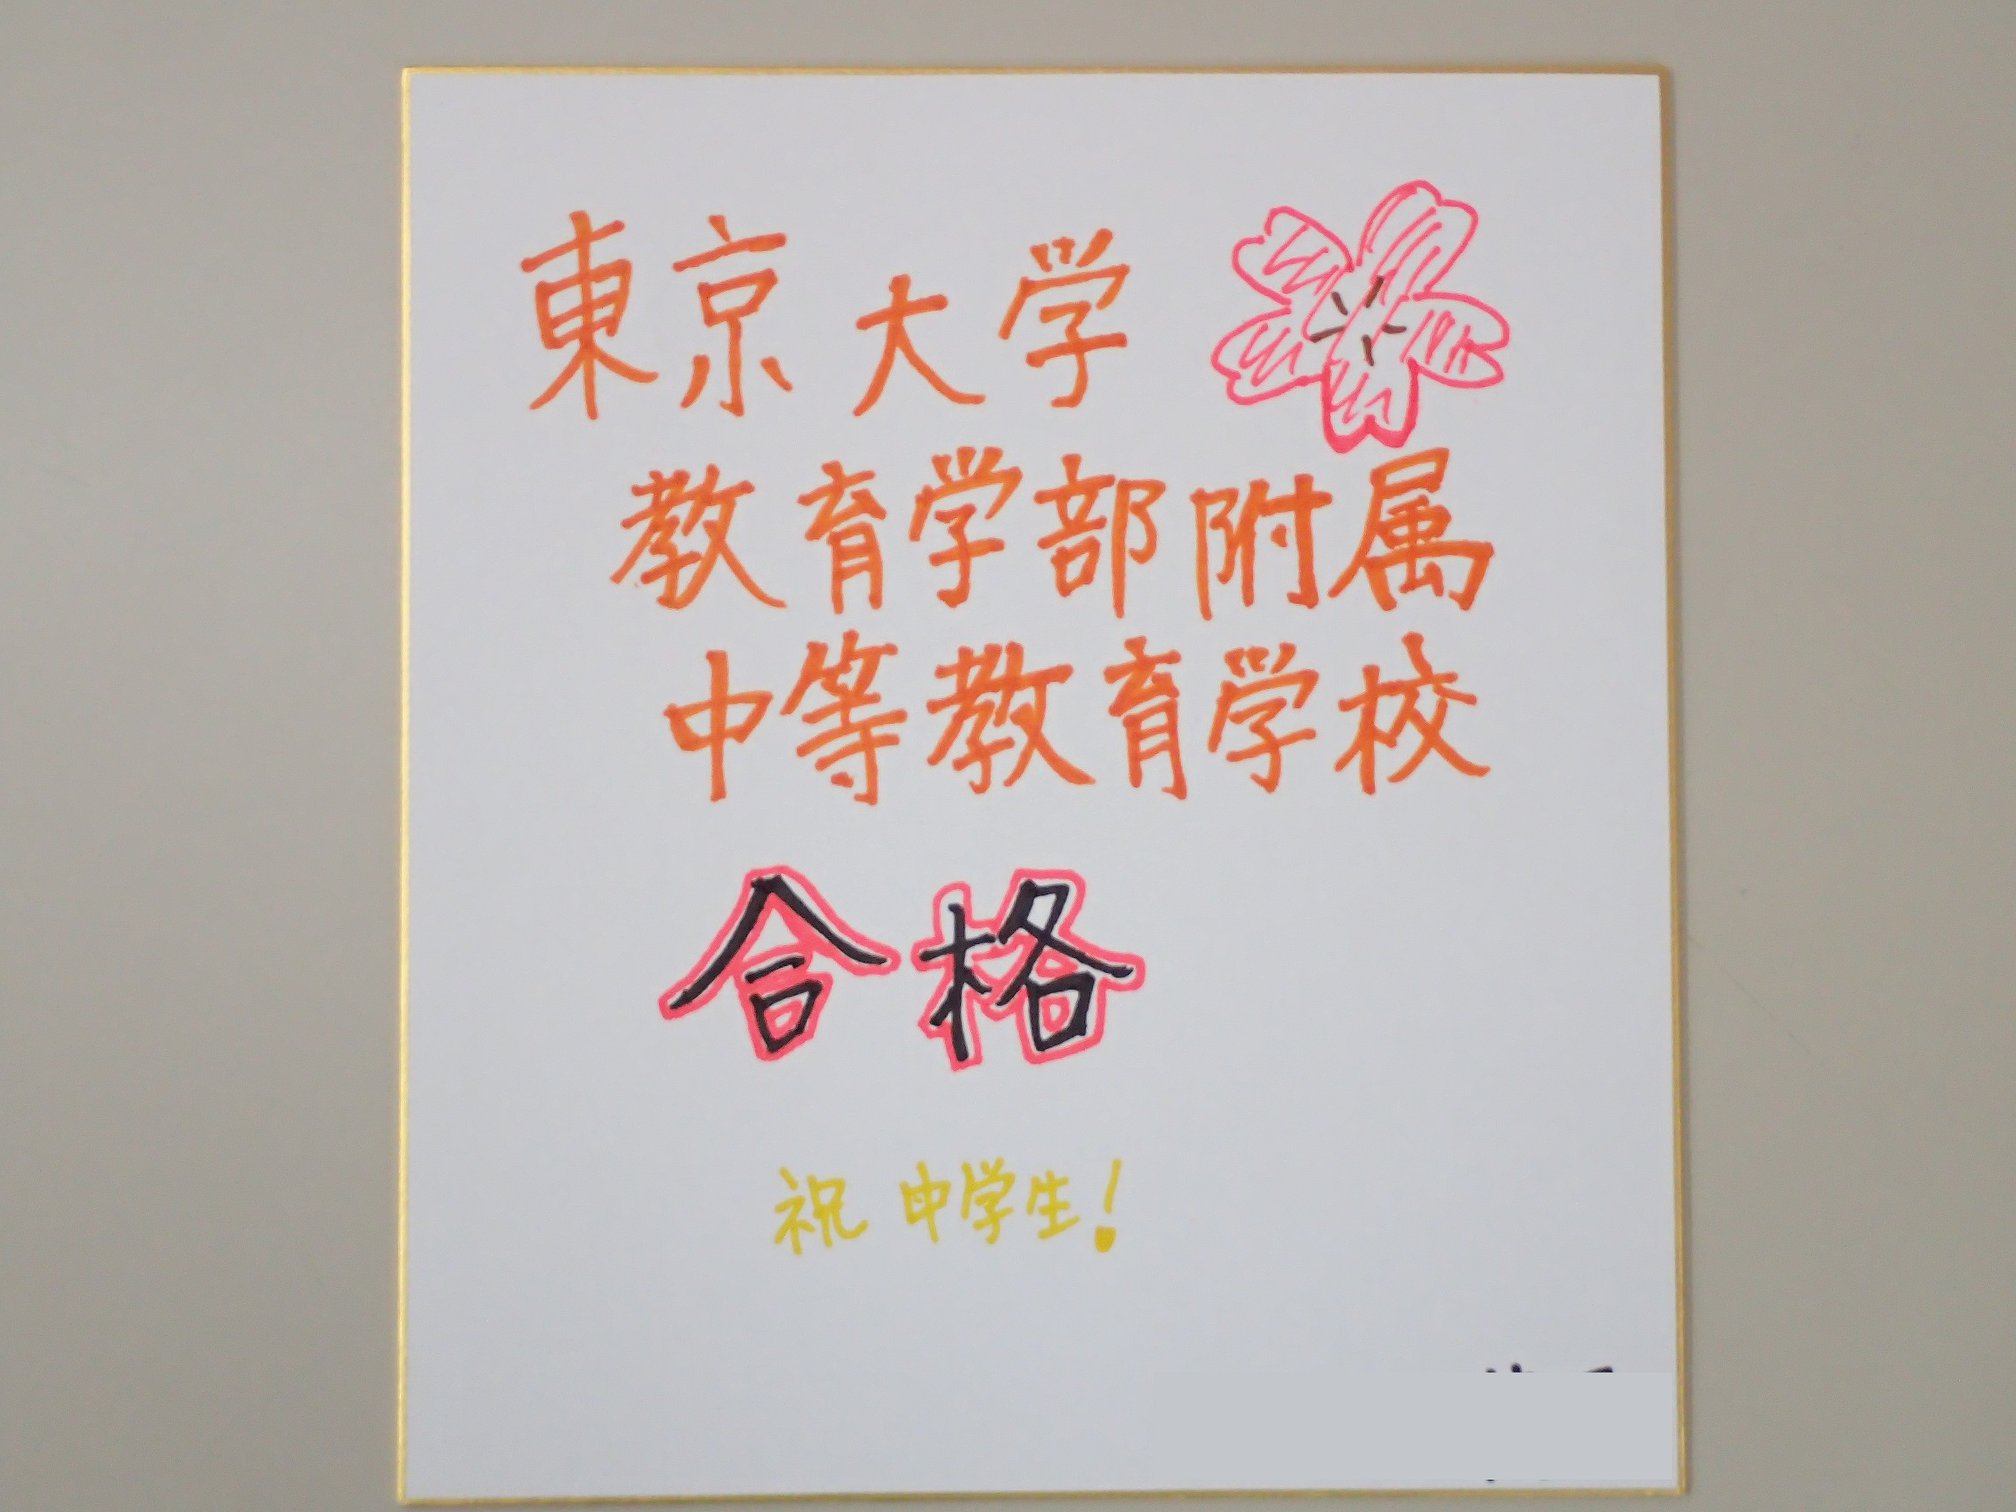 東京大学
教育学部附属
中等教育学校
合格
祝 中学生!